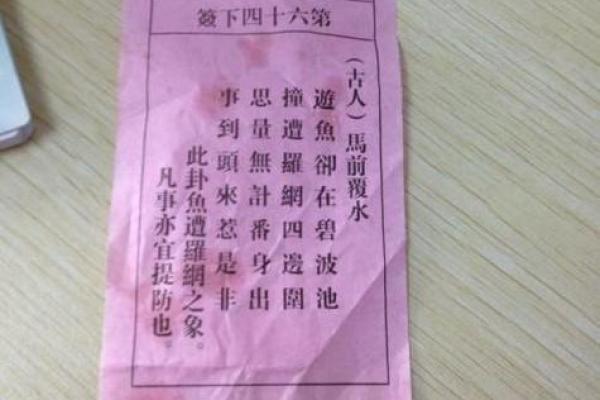 第六十四下簽
（古人）馬前覆水
遊魚卻在碧波池
撞遭羅網四邊圍
思量無計番身出
事到頭來惹是非
此卦魚遭羅網之象。
凡事亦宜提防也。